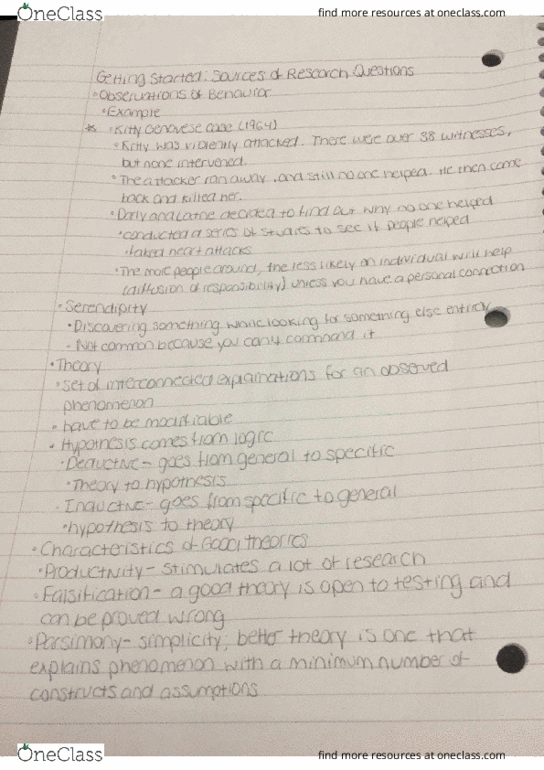 OneClass
find more resources at oneclass.com
Getting Started: Sources of Research Questions
• Observations of Behavior
• Example
* • Kitty Genovese case (1964)
• Kitty was violently attacked. There were over 38 witnesses,
but none intervened.
• The attacker ran away, and still no one helped. He then came
back and killed her.
• Darly and Latine decided to find out why no one helped
• conducted a series of studies to see if people helped
• faked heart attacks
• The more people around, the less likely an individual will help
(diffusion of responsibility) unless you have a personal connection
• Serendipity
• Discovering something while looking for something else entirely
• Not common because you can't command it
• Theory
• set of interconnected explanations for an observed
phenomenon
• have to be modifiable
• Hypothesis comes from logic
• Deductive - goes from general to specific
• Theory to hypothesis
• Inductive - goes from specific to general
• hypothesis to theory
• Characteristics of Good theories
• Productivity - stimulates a lot of research
• Falsification - a good theory is open to testing and
can be proved wrong
• Parsimony - simplicity; better theory is one that
explains phenomenon with a minimum number of
constructs and assumptions
OneClass
find more resources at oneclass.com